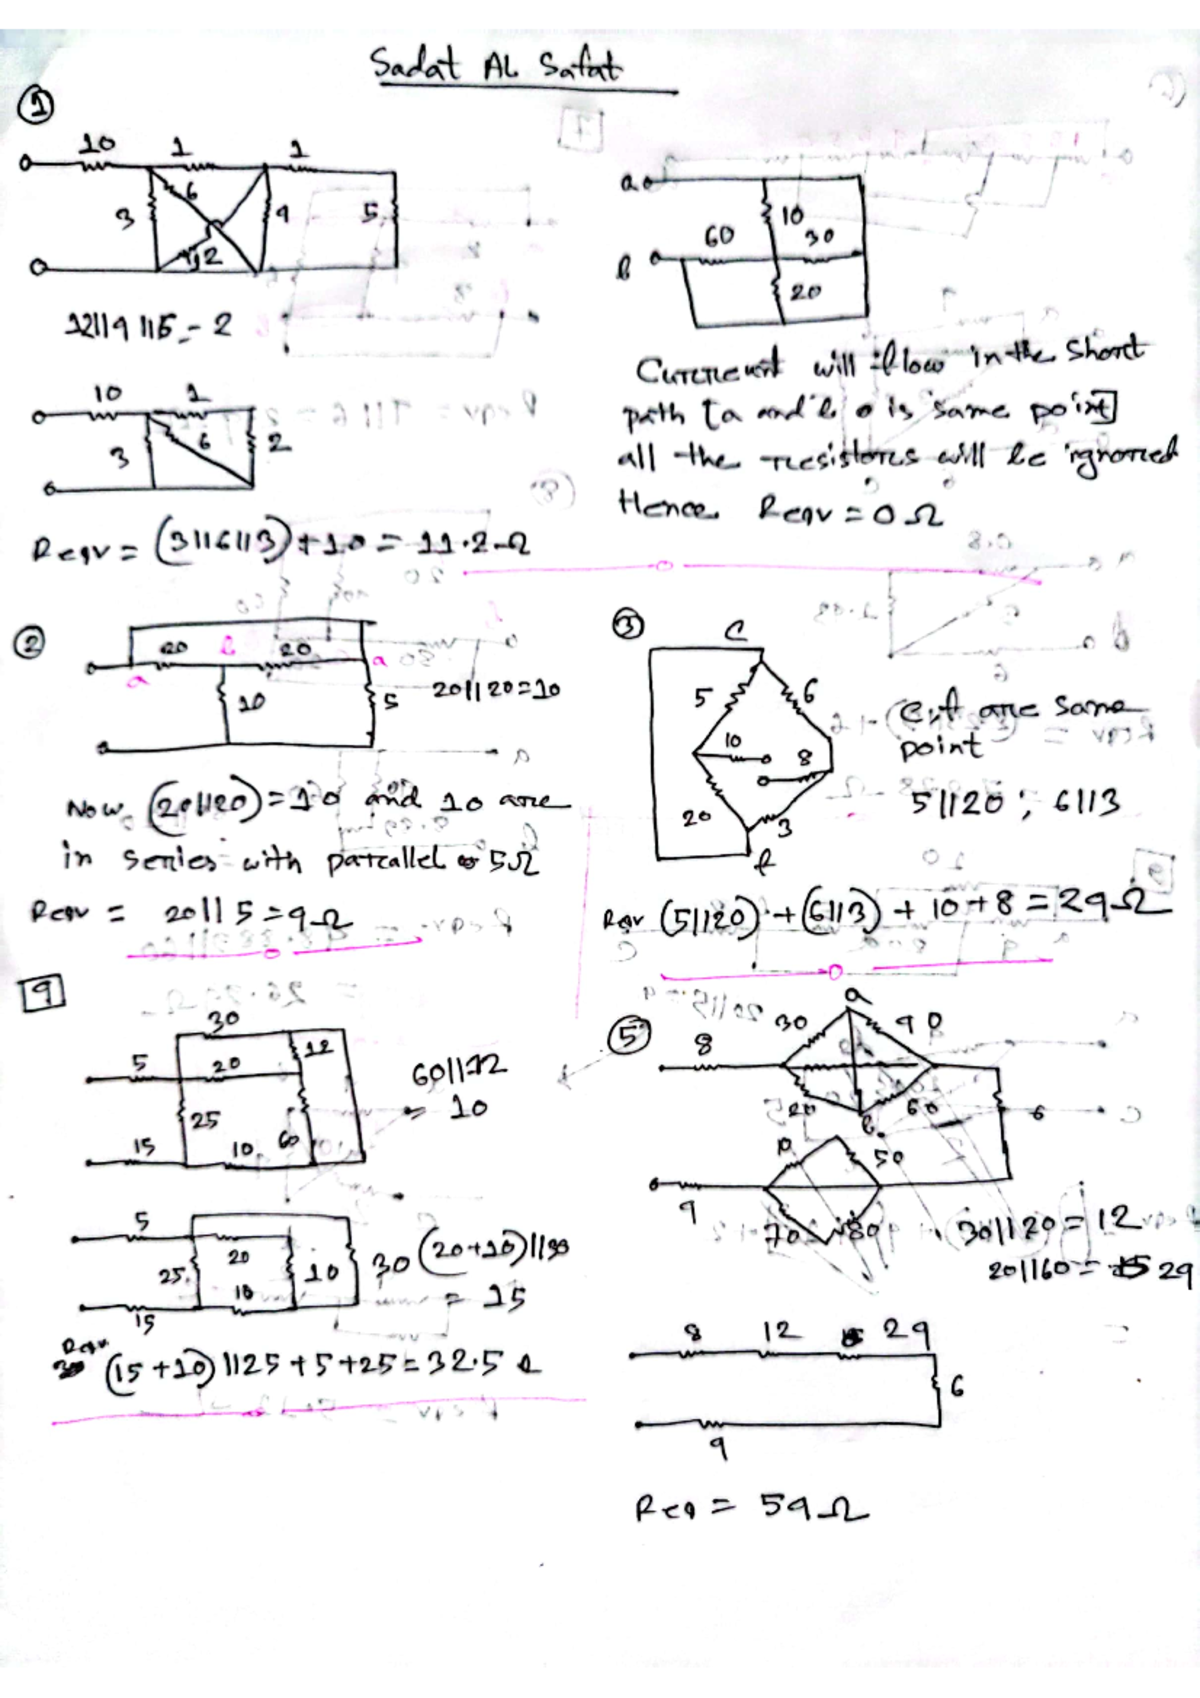 Sadat AL Safat
1
10 1 1
3 6 4 5
12
12||4||6 = 2
10 1
3 6 2
Reqv = (3||6||3) + 10 = 11.2 Ω
a
10
60 30
b
20
Current will flow in the Short
path [a and b is same point]
all the resistors will be ignored
Hence Reqv = 0 Ω
2
20 b 20
a a
10 5 20||20=10
Now (20||20) = 10 and 10 are
in series with parallel 5Ω
Reqv = 20||5 = 4Ω
3
c
5 6
10 8
20 3
f
c, f are same
point
5||20 ; 6||3
Reqv (5||20) + (6||3) + 10 + 8 = 24 Ω
4
30
5 20 12
25
15 10 60
60||12
= 10
5
20
25 10 30
10
15
(20+10)||30
= 15
Reqv
(15+10)||25+5+25 = 32.5
5
a
8 30 40
20 60
b 6
50
9
70 80
30||20 = 12
20||60 = 24
8 12 24
6
9
Req = 59 Ω